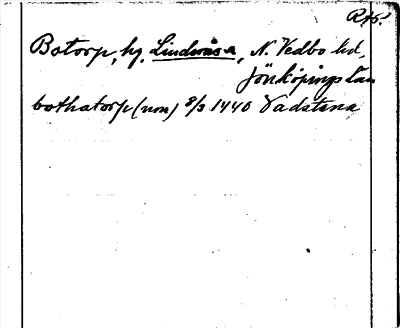 RAp.
Botorp, hg. Lindernäs, N. Vedbo hd,
Jönköpings län
bothatorp (nom) 8/3 1440 Vadstena